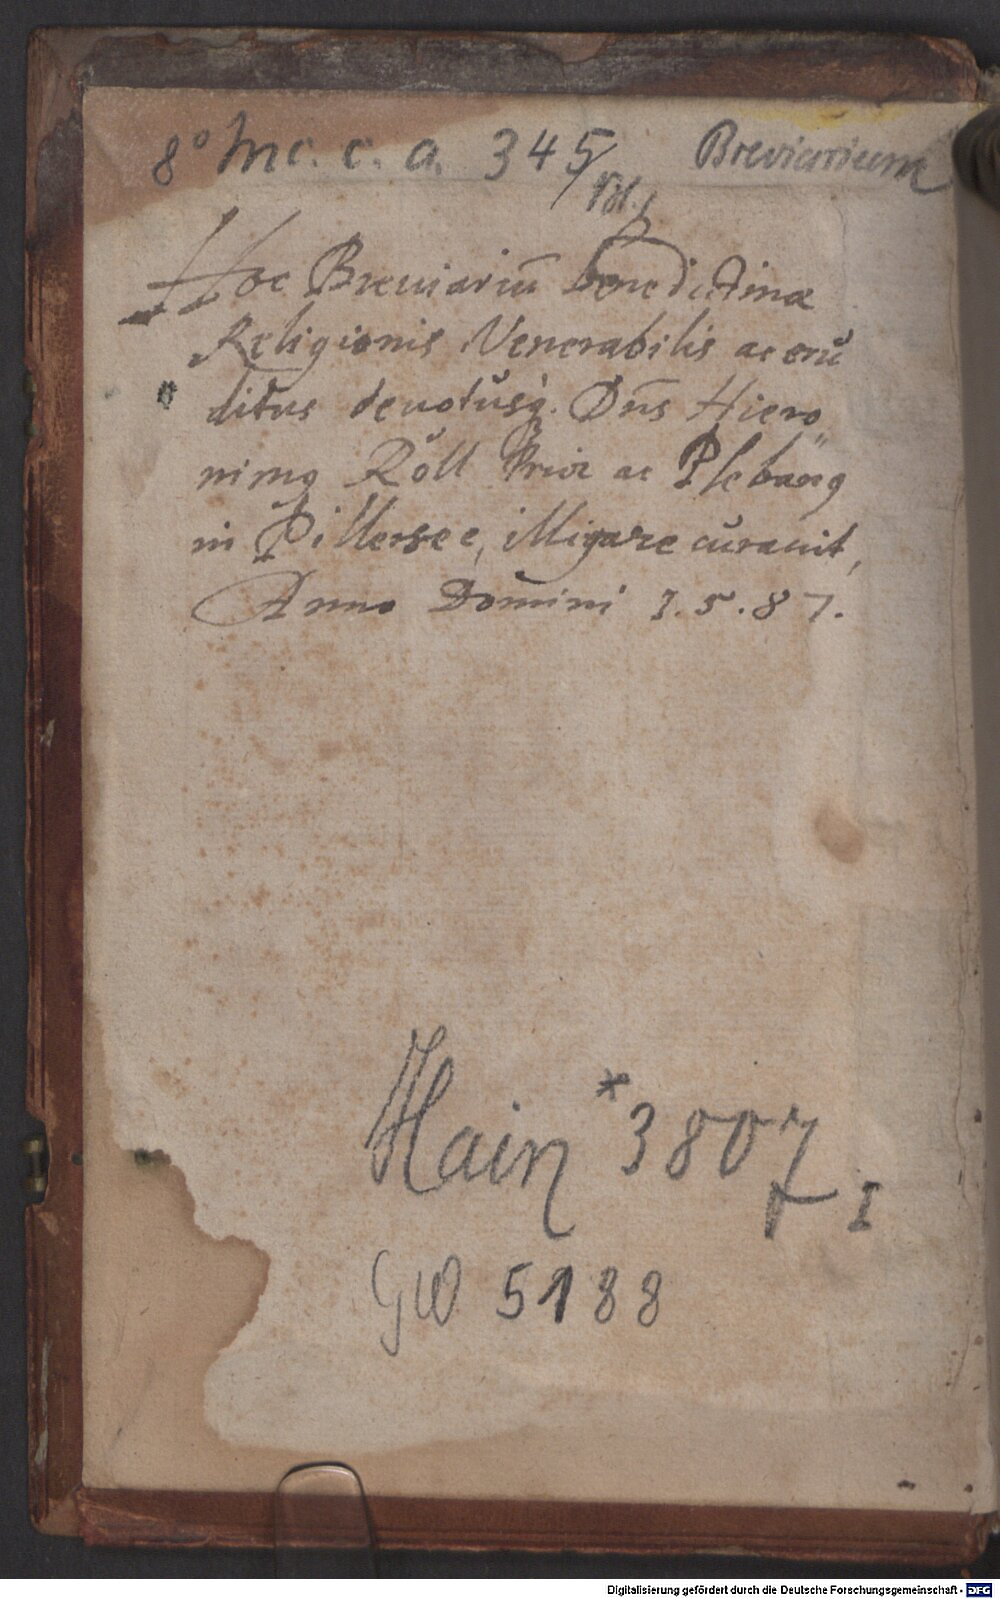 8° Inc. c. a. 345/
Breviarium
Hoc Breuiariū benedictinæ
Religionis Venerabilis ac eru
ditus deuotusq. Dns̄ Hiero
nimꝯ Röll Prior ac Plebanꝯ
in Pillersee, illigare curauit,
Anno Domini 1.5.87.
Hain *3807
I
GW 5188
Digitalisierung gefördert durch die Deutsche Forschungsgemeinschaft - DFG